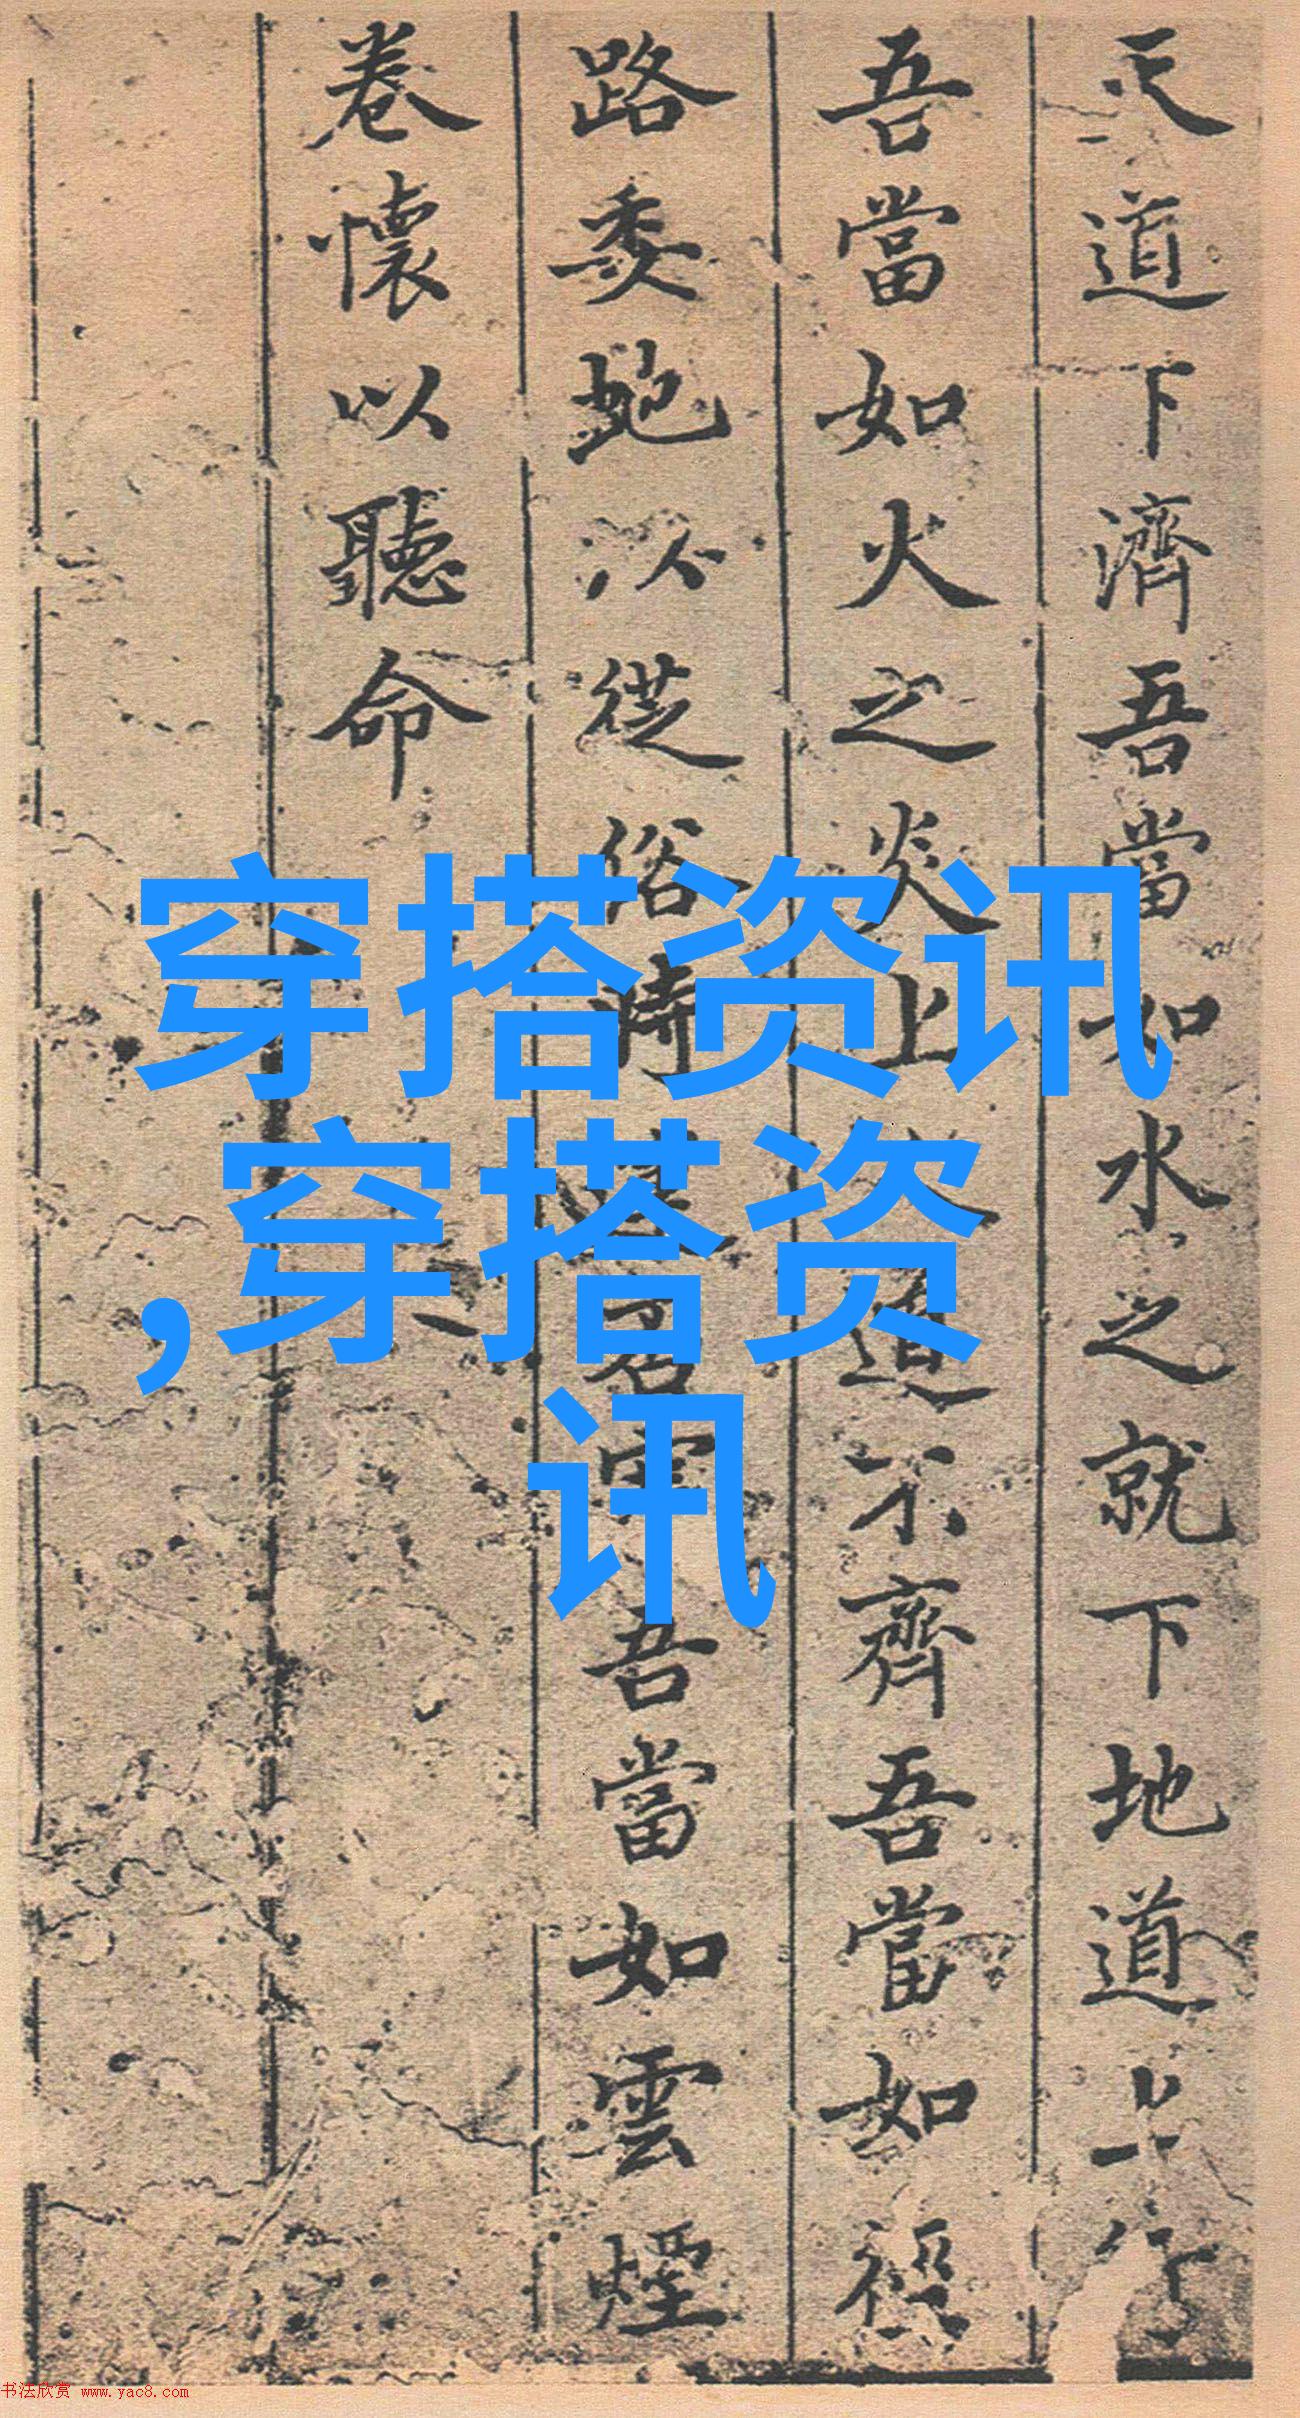 天道下濟吾當如水之就下地道上行
吾當如火之炎上道不齊吾當如徑
路委蛇以從俗時吾當如雲煙
卷懷以聽命
穿搭资讯
,穿搭资
讯
书法欣赏 www.yac8.com